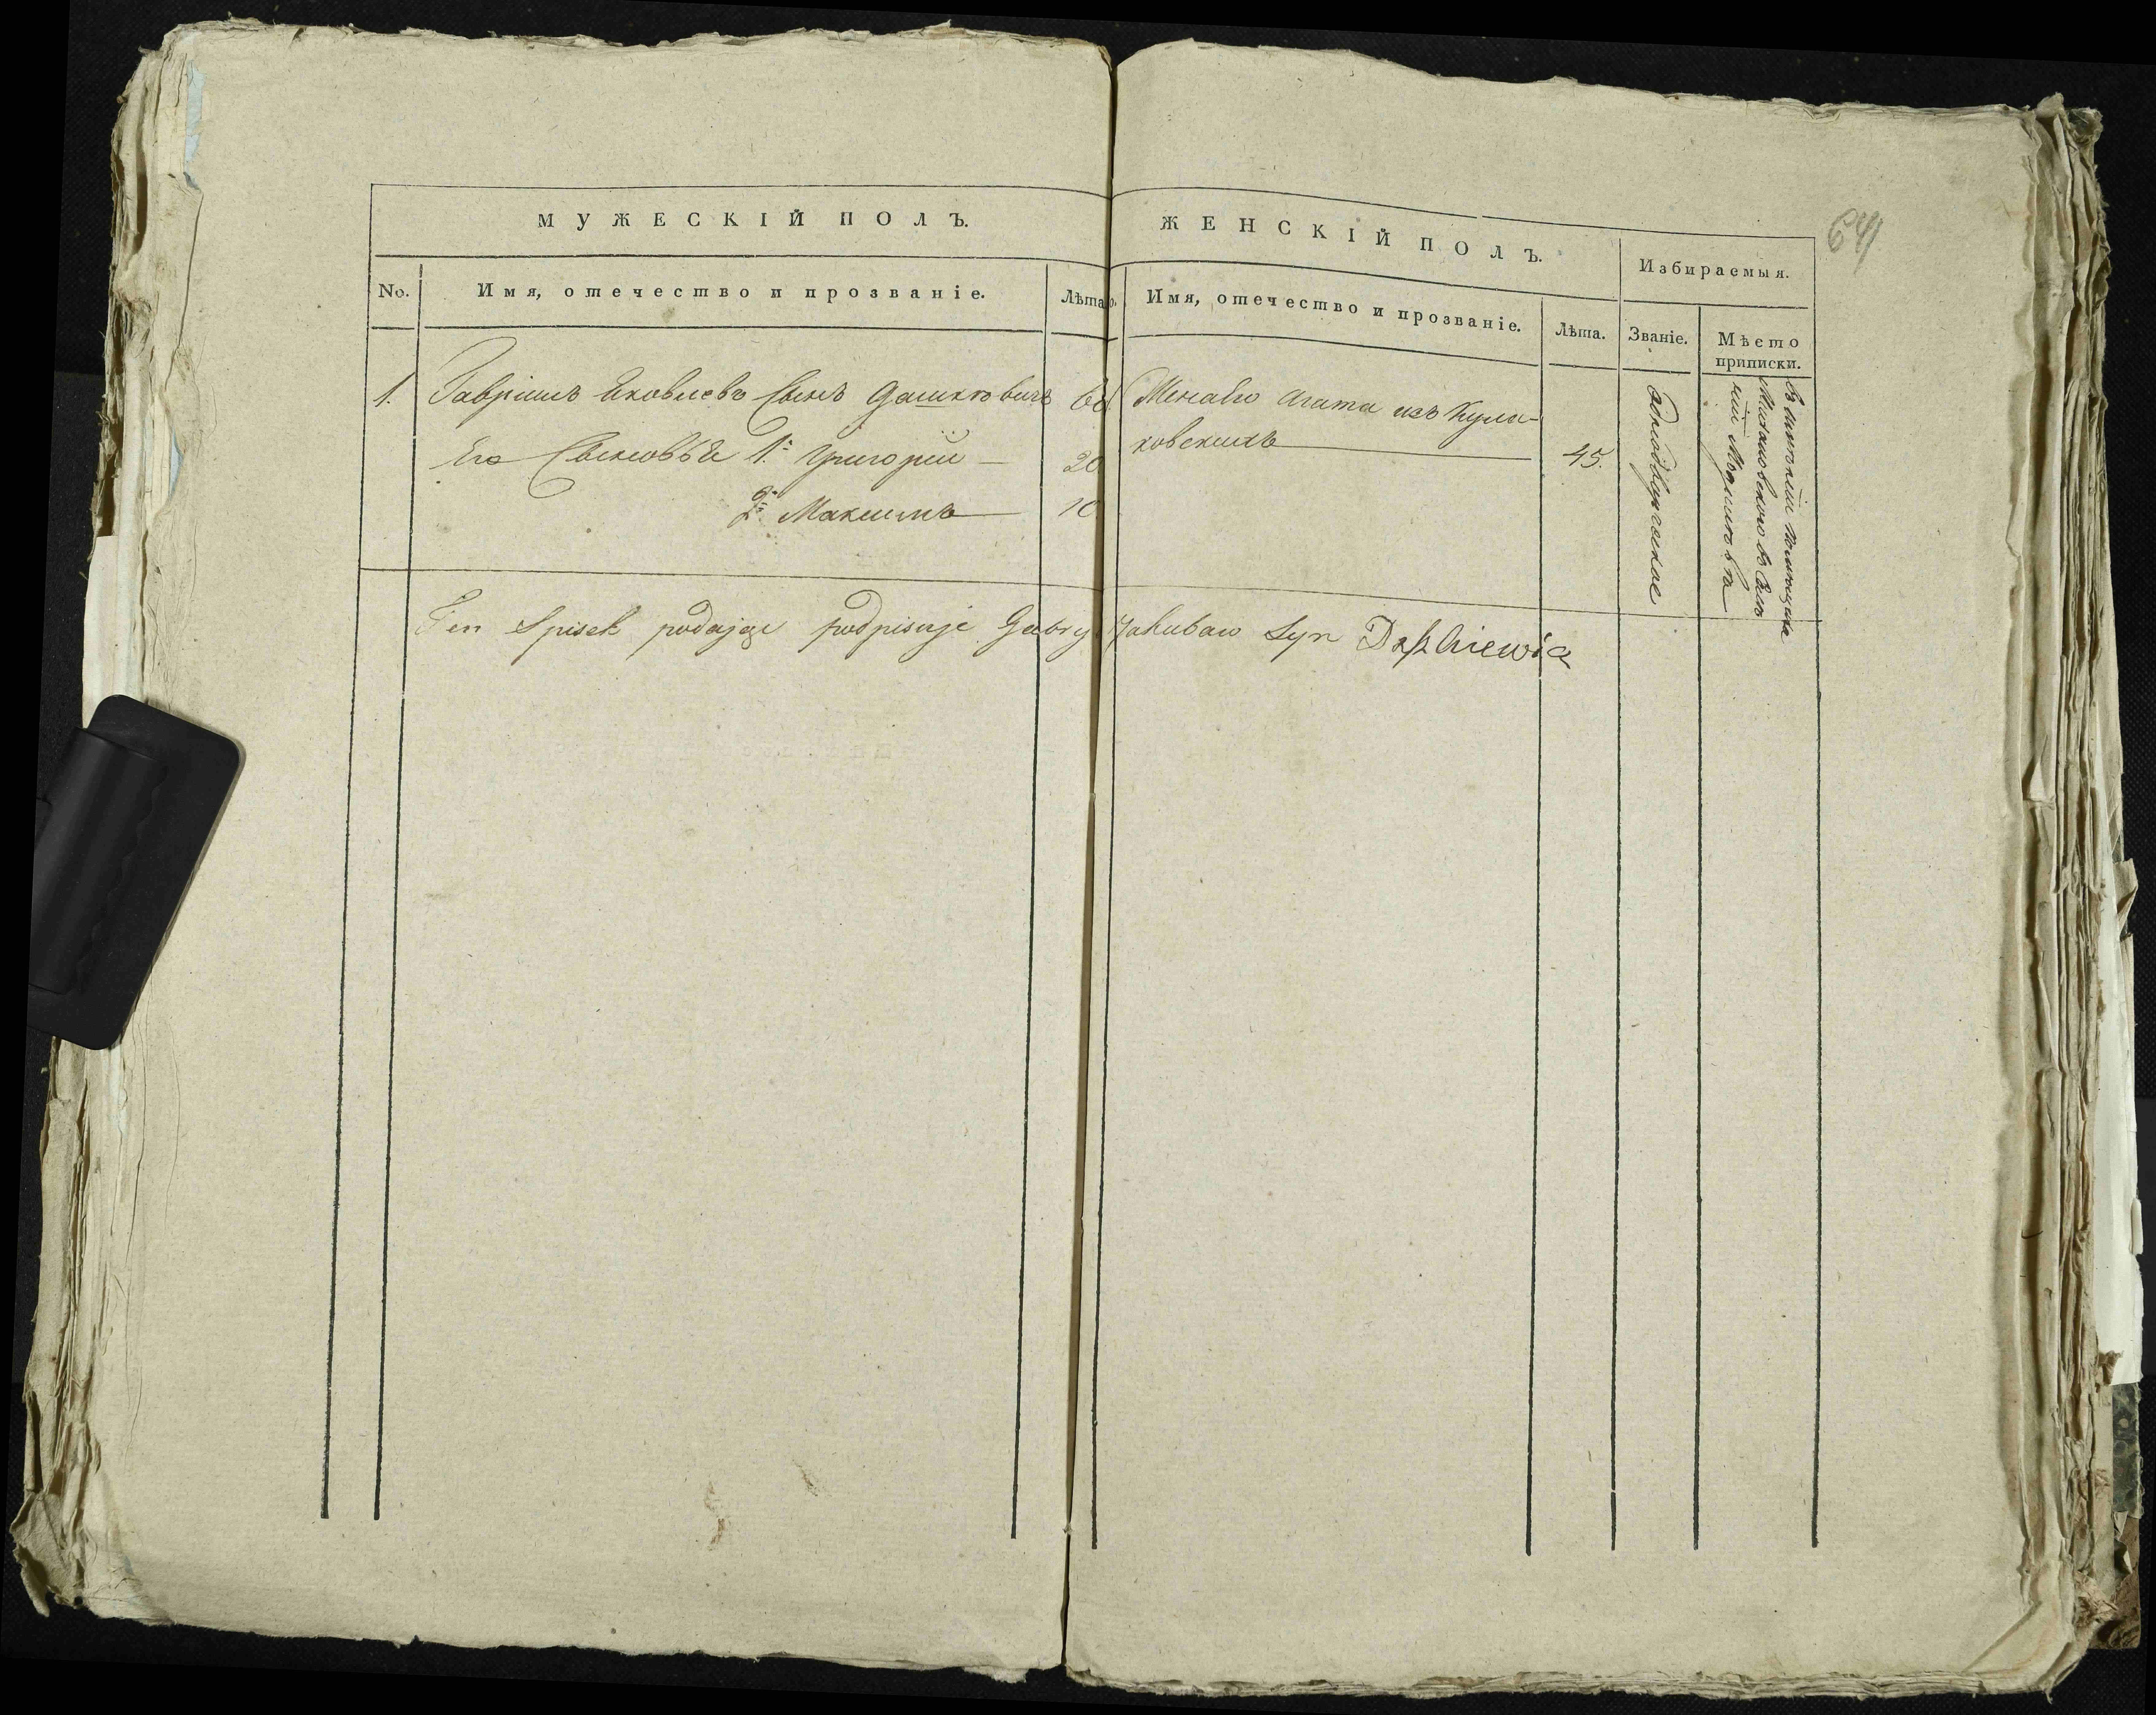 64
МУЖЕСКІЙ ПОЛЪ.
ЖЕНСКІЙ ПОЛЪ.
Избираемыя.
No.
Имя, отечество и прозваніе.
Лѣта
о.
Имя, отечество и прозваніе.
Лѣта.
Званіе.
Мѣсто
приписки.
1. Гавріилъ Яковлевъ Сынъ Дашкевичъ
Его Сыновья 1й Григорій 20
2й Максимъ 10
Жена Его Агата изъ Кула-
ковскихъ 45.
Однодворческое
въ имѣніи помещика
Ten Spisek podając podpisuje Gabry Jakubaw Syn Daszkiewicz